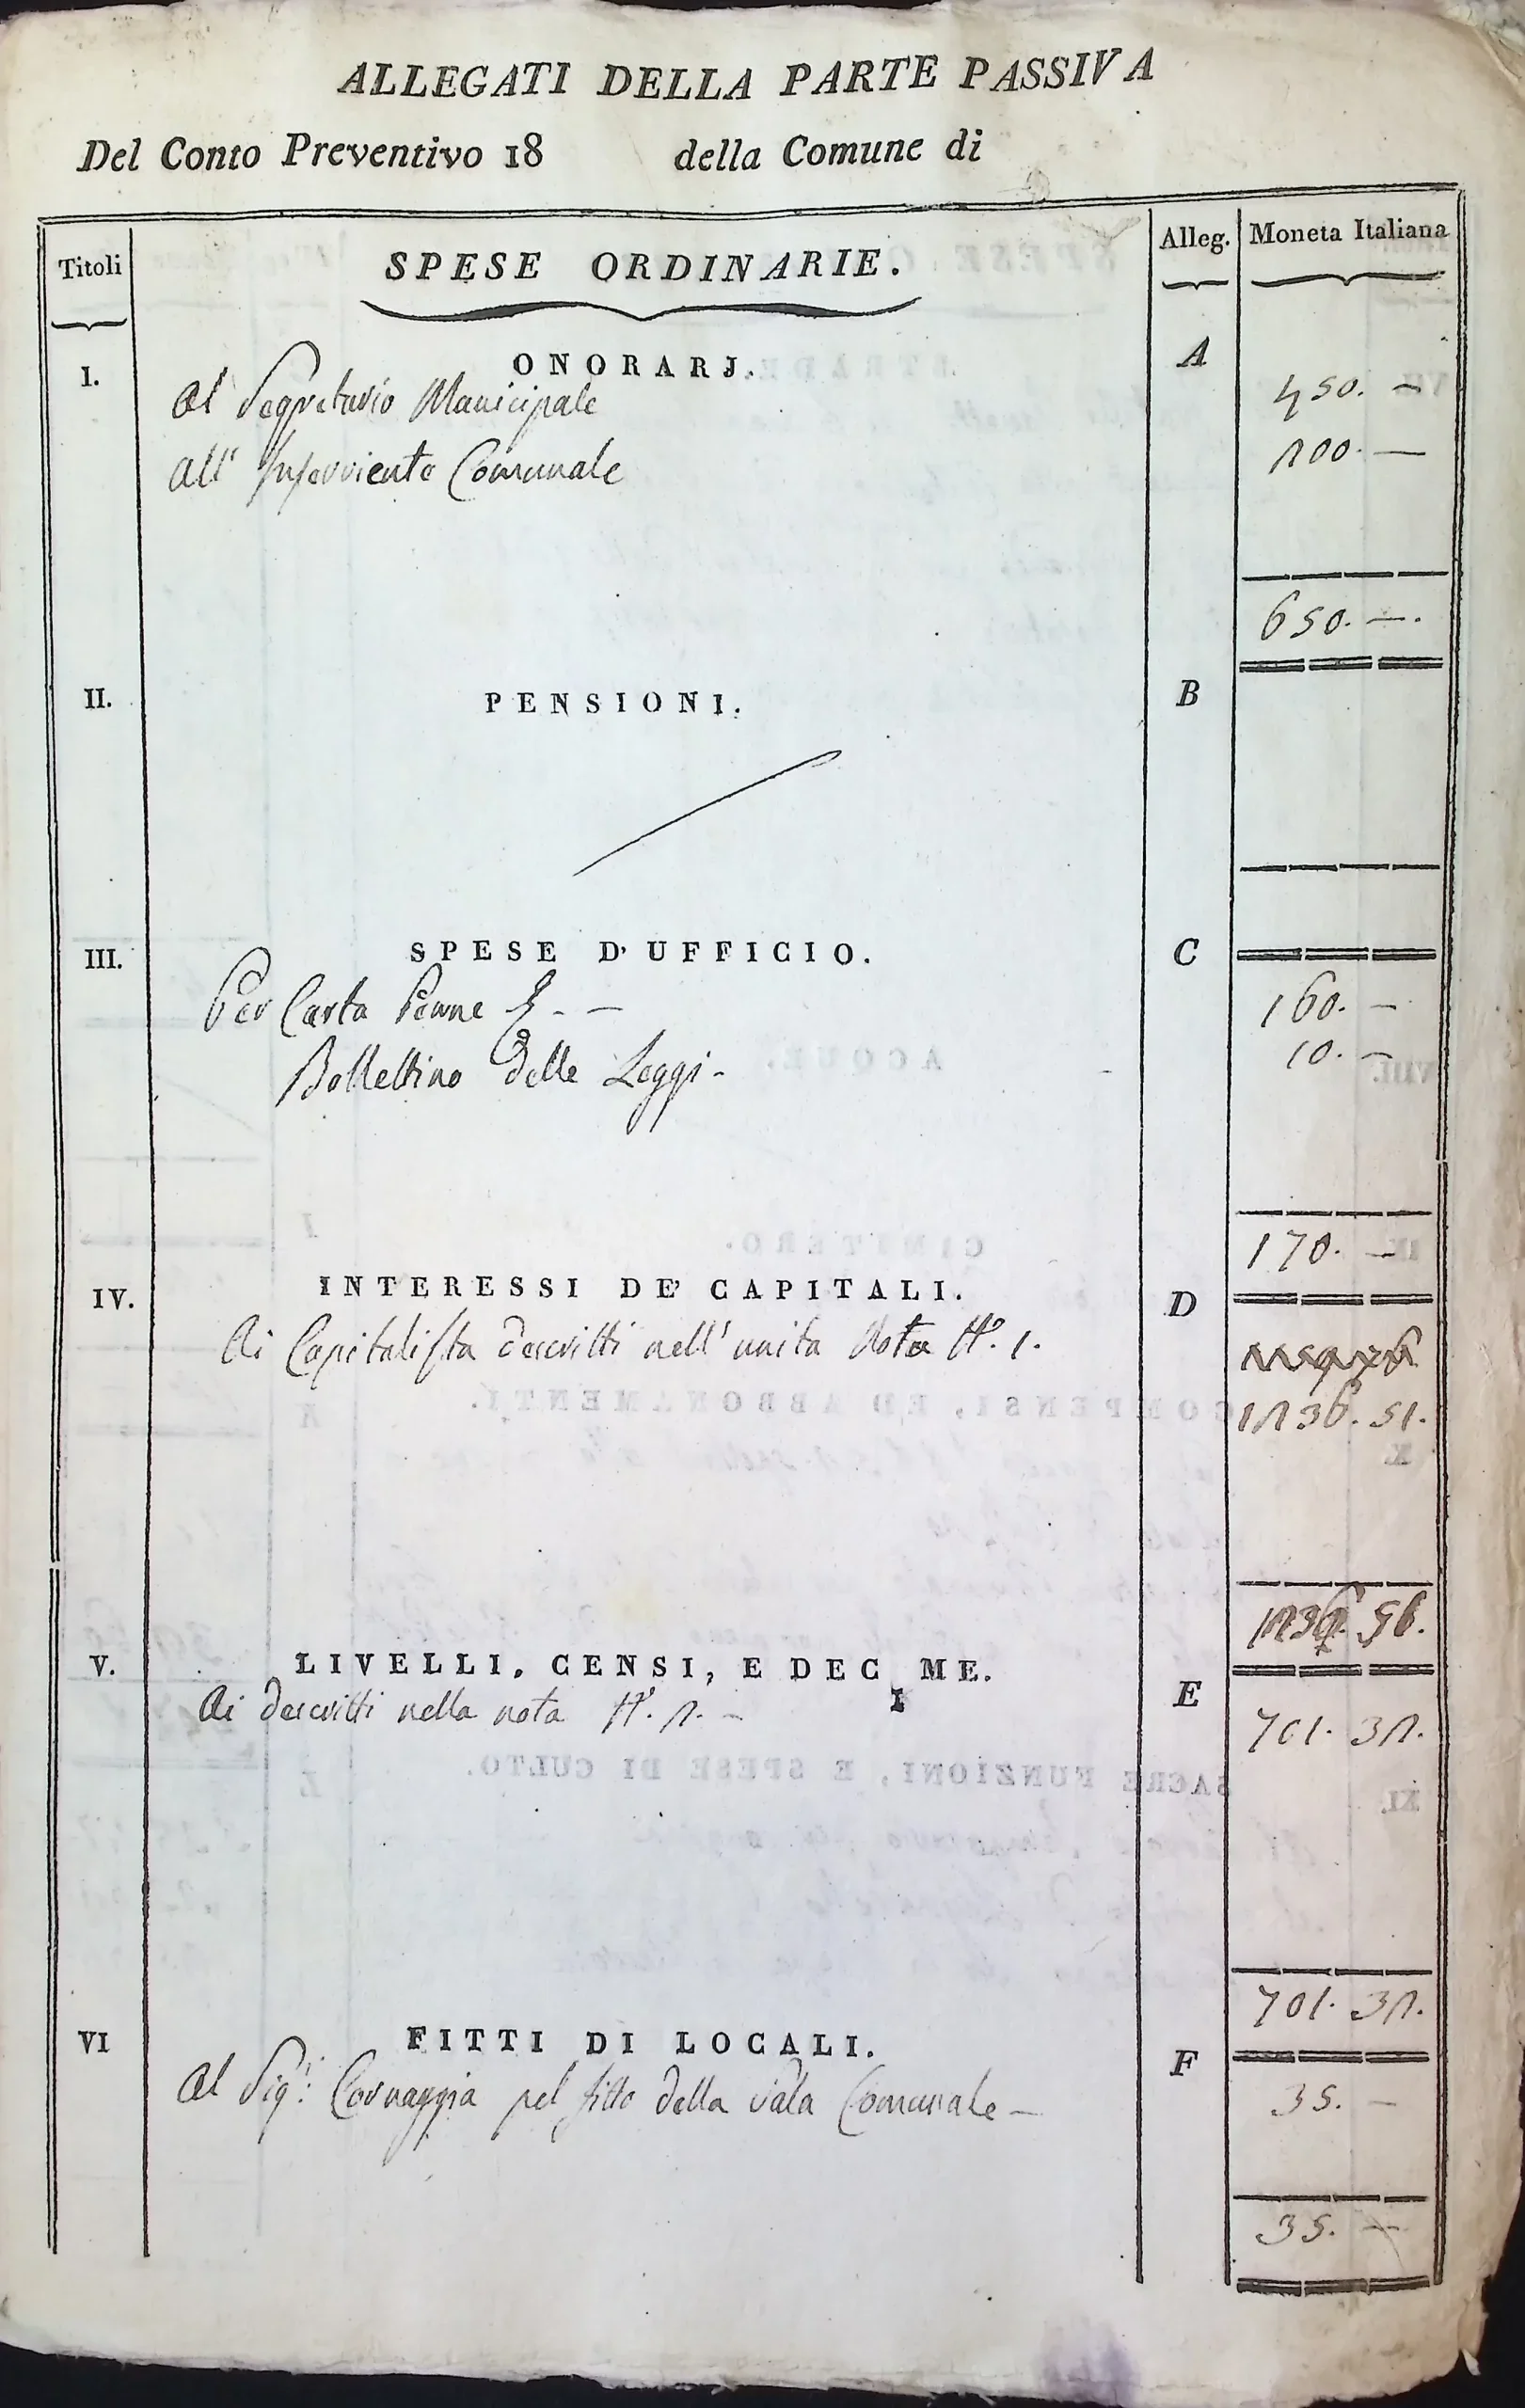 ALLEGATI DELLA PARTE PASSIVA
Del Conto Preventivo 18 della Comune di
Titoli SPESE ORDINARIE. Alleg. Moneta Italiana
I. ONORARJ. A
Al Segretario Municipale 450. —
All' Inserviente Comunale 200. —
650. —.
II. PENSIONI. B
III. SPESE D'UFFICIO. C
Per Carta Penne &. - — 160. —
Bollettino delle Leggi - 10. —
170. —
IV. INTERESSI DE' CAPITALI. D
Ai Capitalista descritti nell' unita Nota N°. 1.
1236. 51.
1236.
V. LIVELLI, CENSI, E DECIME. E
Ai descritti nella nota N°. 2. - 701. 32.
701. 32.
VI FITTI DI LOCALI. F
Al Sigr: Cornaggia pel fitto della Sala Comunale — 35. —
35. —